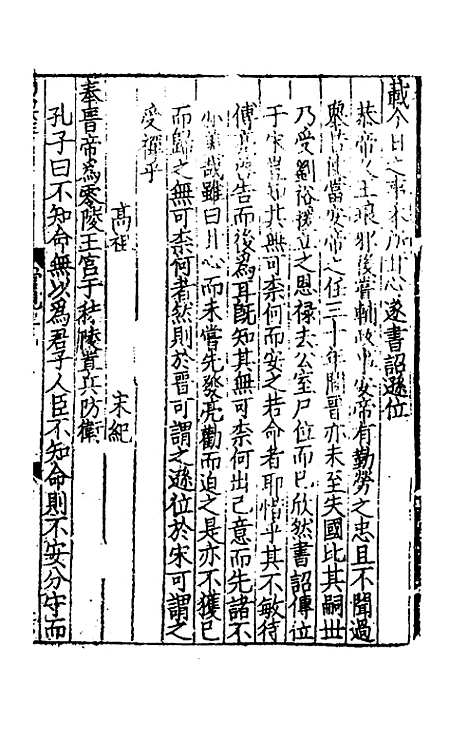 載今日之事本所甘心遂書詔遜位
恭帝以王琅邪後嘗輔政事安帝有勤勞之忠且不聞過
舉當安帝之任三十年間晋亦未至失國比其嗣丗
乃受劉裕援立之恩禄去公室尸位而已欣然書詔傳位
于宋豈知其無可柰何而安之若命者耶惜乎其不敏待
傅亮告而後爲耳旣知其無可柰何出己意而先諸不
亦美哉雖曰甘心而未嘗先發亮勸而迫之是亦不獲已
而歸之無可柰何者然則於晋可謂之遜位於宋可謂之
受禪乎
髙祖 宋紀
奉晋帝爲零陵王宫于秣陵置兵防衛
孔子曰不知命無以爲君子人臣不知命則不安分守而